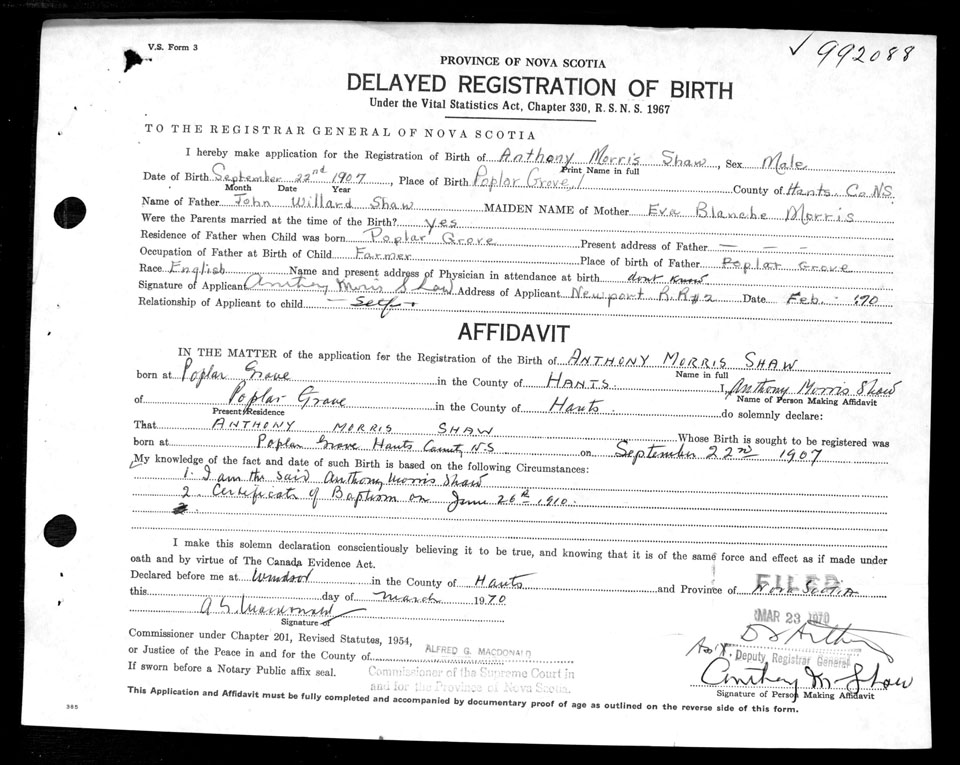 V.S. Form 3
✓ 992088
PROVINCE OF NOVA SCOTIA
DELAYED REGISTRATION OF BIRTH
Under the Vital Statistics Act, Chapter 330, R.S.N.S. 1967
TO THE REGISTRAR GENERAL OF NOVA SCOTIA
I hereby make application for the Registration of Birth of Anthony Morris Shaw, Sex Male
Print Name in full
Date of Birth September 22nd 1907, Place of Birth Poplar Grove, County of Hants Co. N.S.
Month Date Year
Name of Father John Willard Shaw MAIDEN NAME of Mother Eva Blanche Morris
Were the Parents married at the time of the Birth? yes
Residence of Father when Child was born Poplar Grove Present address of Father — — —
Occupation of Father at Birth of Child Farmer Place of birth of Father Poplar Grove
Race English Name and present address of Physician in attendance at birth dont know
Signature of Applicant Anthony Morris Shaw Address of Applicant Newport R.R#2 Date Feb. 70
Relationship of Applicant to child — Self
AFFIDAVIT
IN THE MATTER of the application for the Registration of the Birth of ANTHONY MORRIS SHAW
Name in full
born at Poplar Grove in the County of HANTS. I, Anthony Morris Shaw
Name of Person Making Affidavit
of Poplar Grove in the County of Hants do solemnly declare:
Present Residence
That ANTHONY MORRIS SHAW Whose Birth is sought to be registered was
born at Poplar Grove Hants County N.S on September 22nd 1907
My knowledge of the fact and date of such Birth is based on the following Circumstances:
1. I am the said Anthony Morris Shaw
2. Certificate of Baptism on June 26th 1910.
I make this solemn declaration conscientiously believing it to be true, and knowing that it is of the same force and effect as if made under
oath and by virtue of The Canada Evidence Act.
Declared before me at Windsor in the County of Hants and Province of Nova Scotia
FILED
this day of March 1970
MAR 23 1970
A G Macdonald
Signature of
Commissioner under Chapter 201, Revised Statutes, 1954,
or Justice of the Peace in and for the County of ALFRED G. MACDONALD
Ass't. Deputy Registrar General
If sworn before a Notary Public affix seal. Commissioner of the Supreme Court in
and for the Province of Nova Scotia.
Anthony M Shaw
Signature of Person Making Affidavit
This Application and Affidavit must be fully completed and accompanied by documentary proof of age as outlined on the reverse side of this form.
385